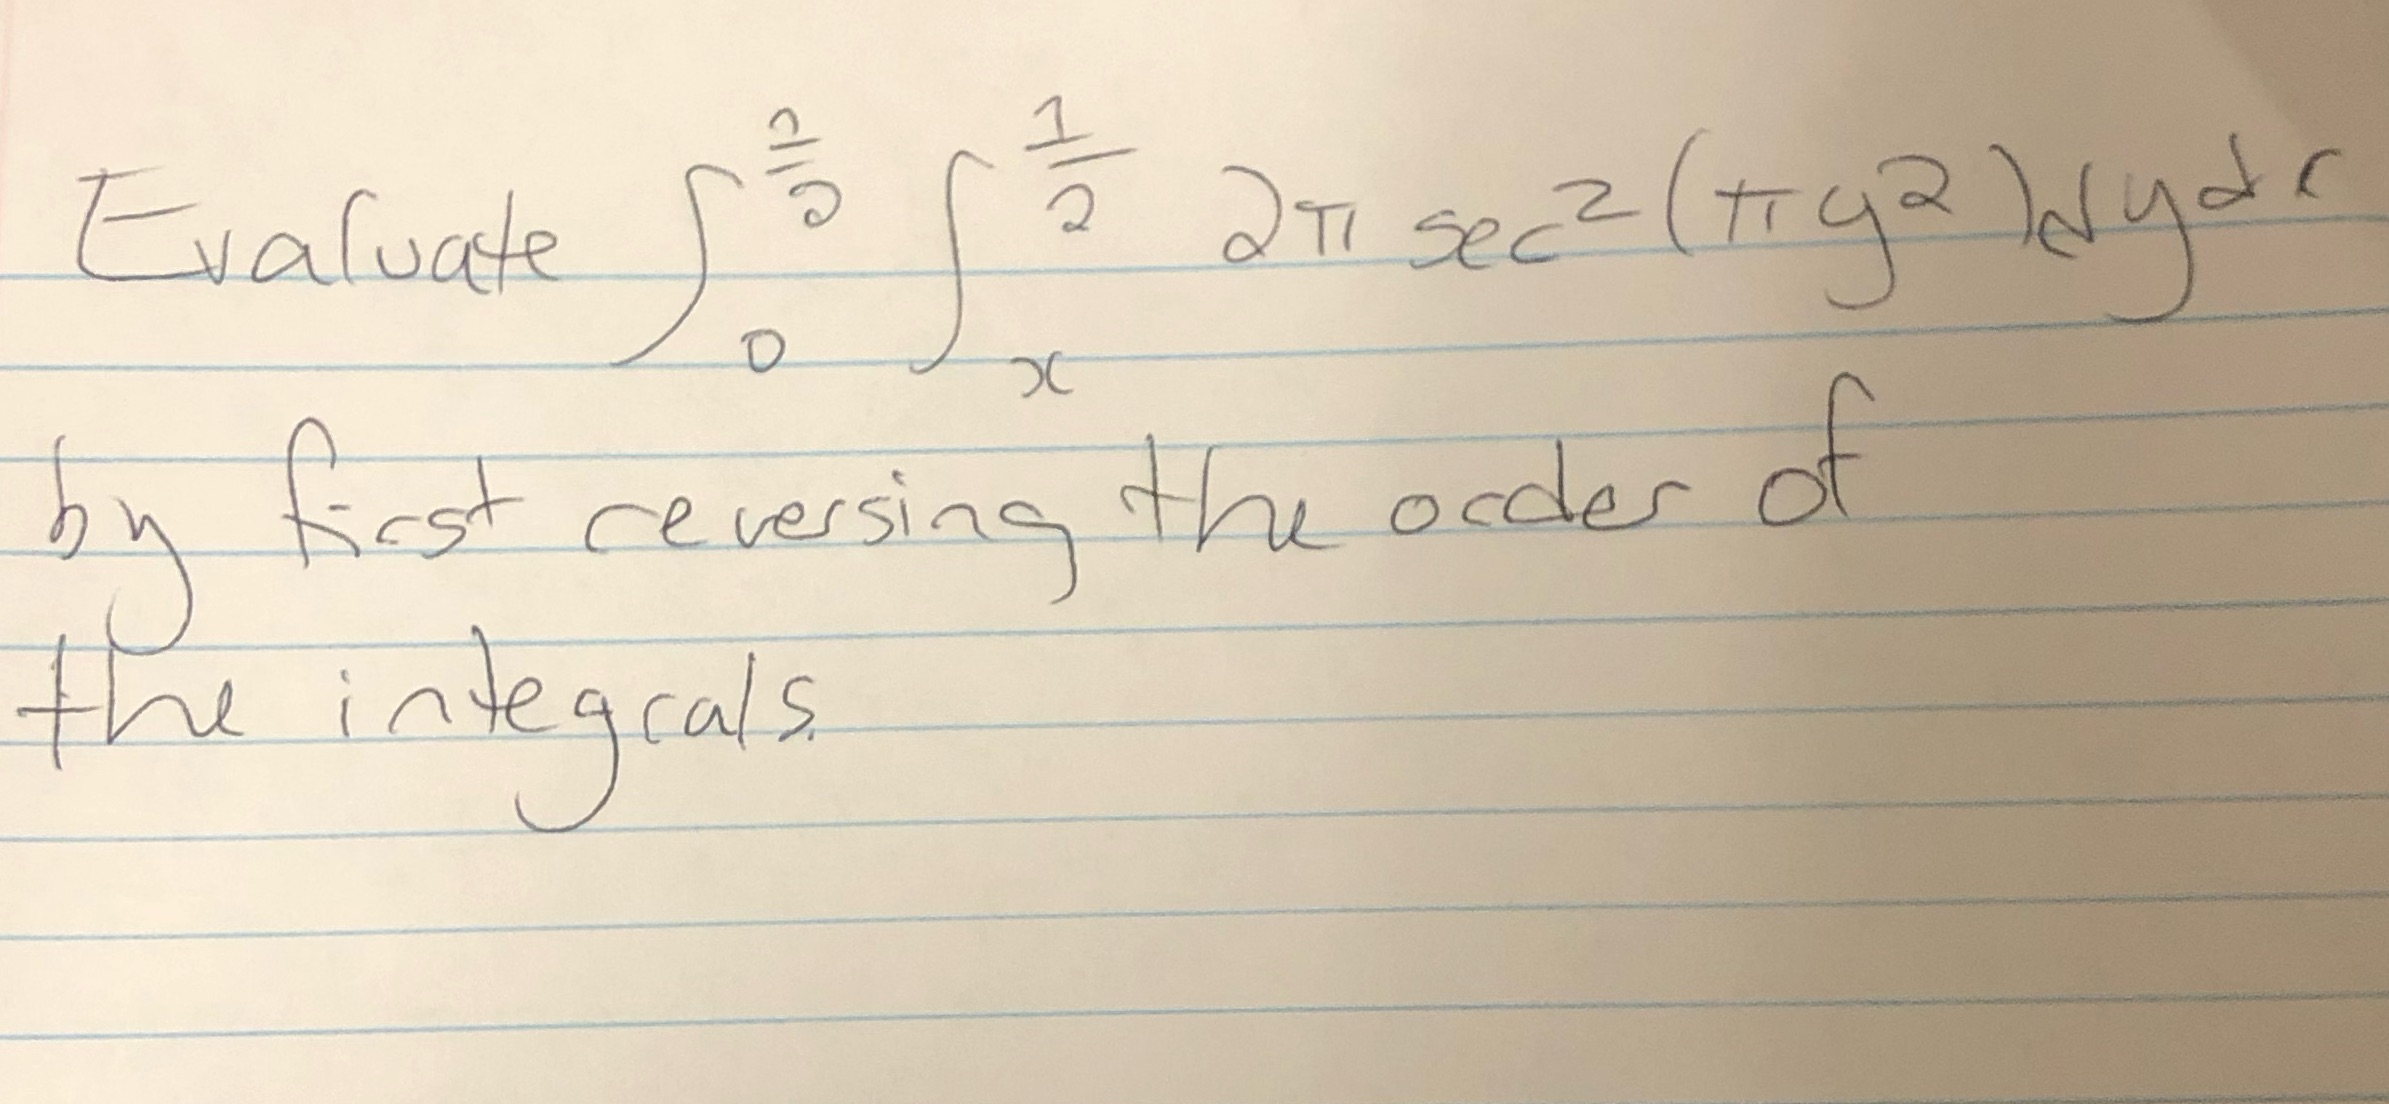 Evaluate ∫_0^{1/2} ∫_x^{1/2} 2π sec²(πy²)dydx
by first reversing the order of
the integrals.